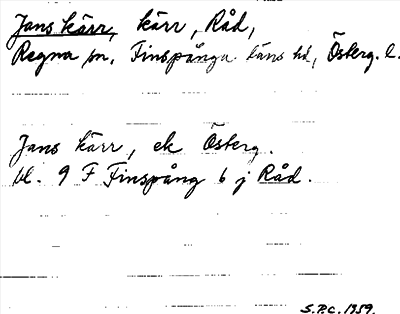 Jans kärr, kärr, Råd,
Regna sn, Finspånga läns hd, Österg. l.
Jans kärr, ek Österg.
bl. 9 F Finspång 6 j Råd.
S.P.C. 1959.